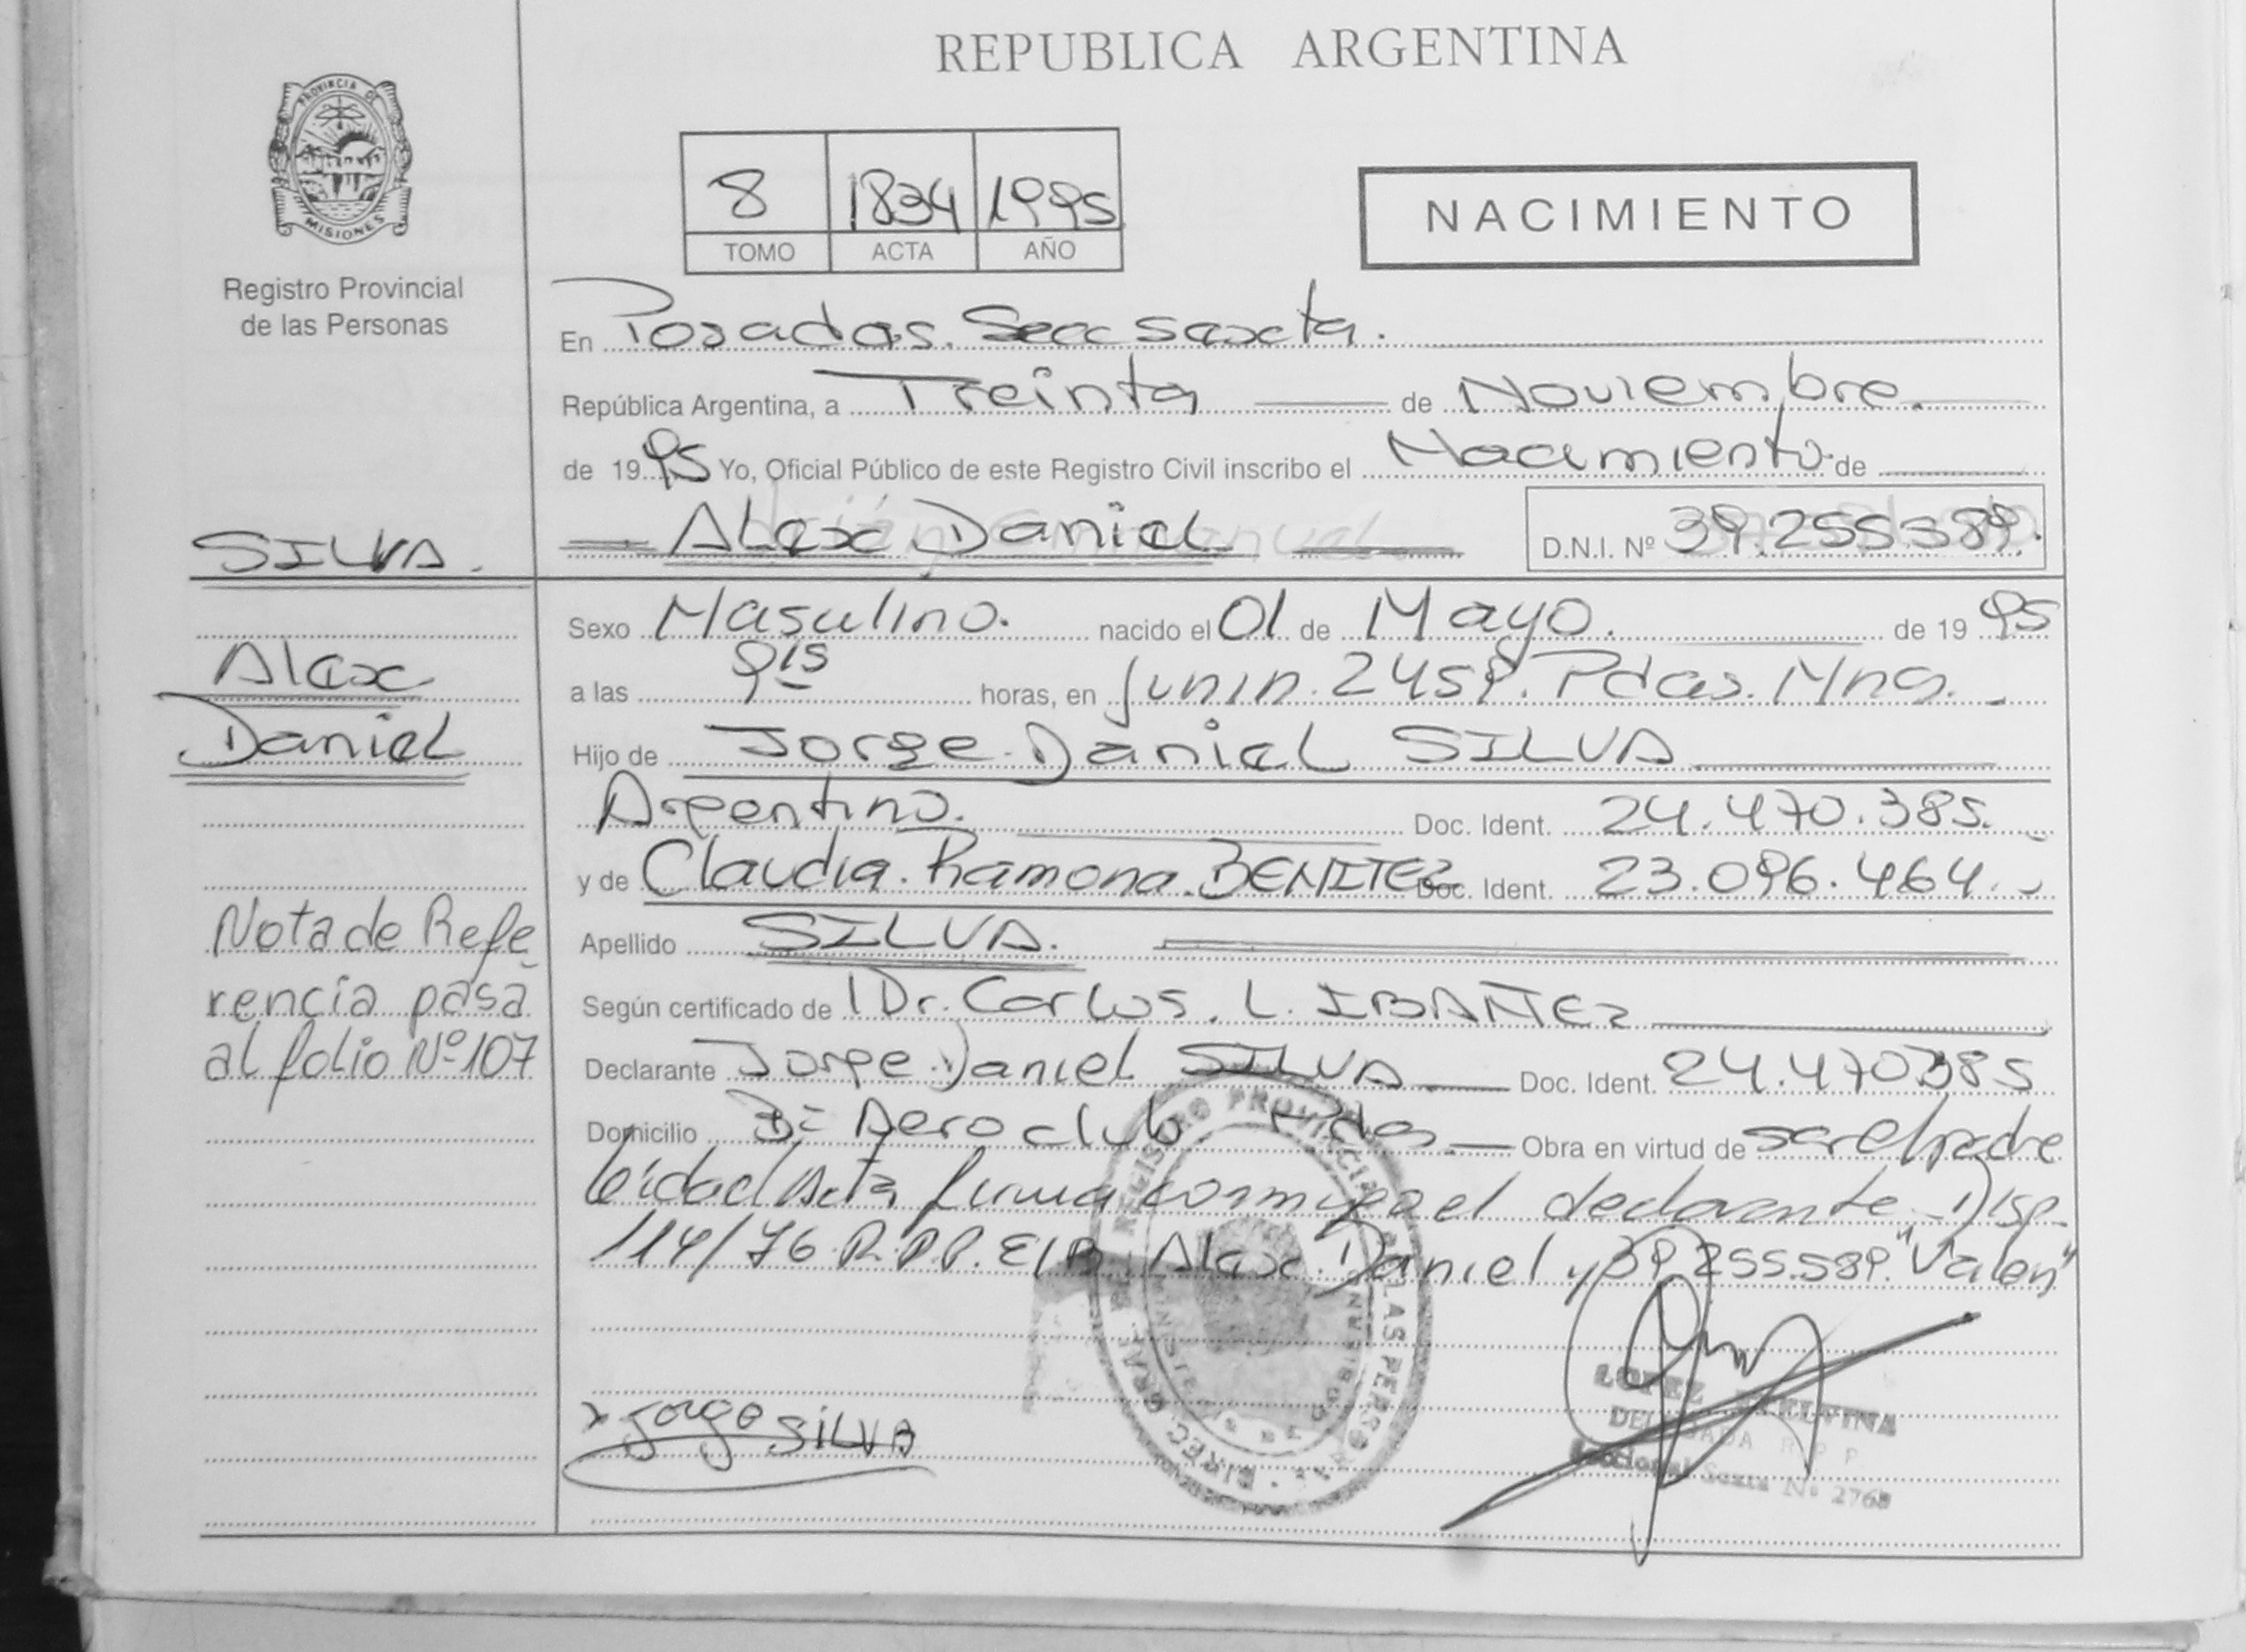 REPUBLICA ARGENTINA
PROVINCIA DE MISIONES
Registro Provincial
de las Personas
8 1834 1995
TOMO ACTA AÑO
NACIMIENTO
En Posadas. Secc Sexta.
República Argentina, a Treinta de Noviembre.
de 1995 Yo, Oficial Público de este Registro Civil inscribo el Nacimiento de
Alex Daniel D.N.I. Nº 39.255589.
SILVA.
Alex
Daniel
Nota de Refe
rencia pasa
al folio Nº 107
Sexo Masculino. nacido el 01 de Mayo. de 1995
a las 9 15 horas, en Junin. 2459. Pdas. Mnes.
Hijo de Jorge Daniel SILVA
Argentino. Doc. Ident. 24.470.385.
y de Claudia. Ramona. BENITEZ Doc. Ident. 23.096.464.
Apellido SILVA.
Según certificado de Dr. Carlos. L. IBAÑEZ
Declarante Jorge Daniel SILVA Doc. Ident. 24.470385
Domicilio Bº Aero club Pdas Obra en virtud de ser el padre
leida el Acta firma conmigo el declarante. Disp.
114/76. R.P.P. E/B: Alex. Daniel y 39.255.589. "Valen"
Jorge SILVA
REGISTRO PROVINCIAL DE LAS PERSONAS
LOPEZ
DELEGADA R P P
Seccional Sexta Nº 2768